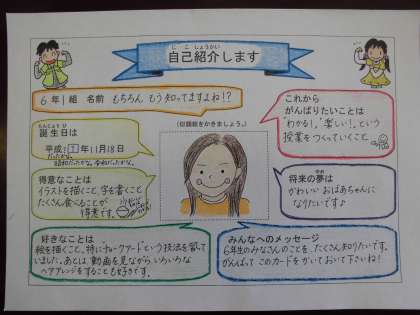 じこしょうかい
自己紹介します
6年1組 名前 もちろん、もう知ってますよね!?
たんじょうび
誕生日は
平成?年11月18日
昭和だったかな、令和だったかな。
得意なことは
イラストを描くこと、字を書くこと
たくさん食べることが
得意です。
好きなことは
絵を描くこと。特にチョークアートという技法を習って
いました。あとは、動画を見ながらいろいろな
ヘアアレンジをすることも好きです。
(似顔絵をかきましょう。)
これから
がんばりたいことは
「わかる!」「楽しい!」という
授業をつくっていくこと。
将来の夢は
かわいいおばあちゃんに
なりたいです♪
みんなへのメッセージ
6年生のみなさんのことを、たくさん知りたいです。
がんばって このカードを かいておいて下さいね!